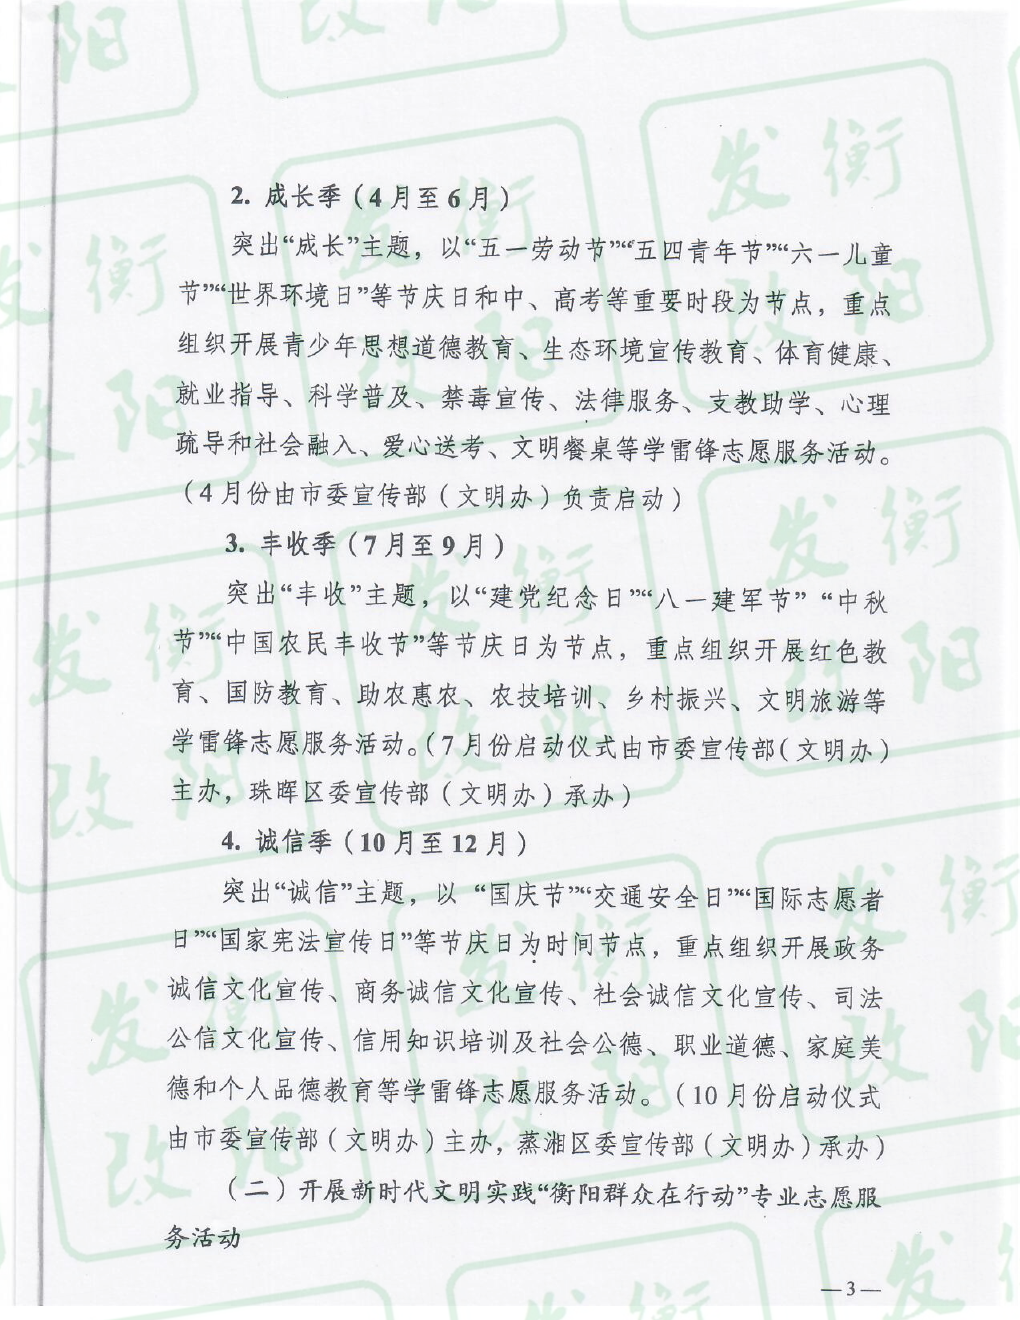 2. 成长季（4月至6月）
突出“成长”主题，以“五一劳动节”“五四青年节”“六一儿童
节”“世界环境日”等节庆日和中、高考等重要时段为节点，重点
组织开展青少年思想道德教育、生态环境宣传教育、体育健康、
就业指导、科学普及、禁毒宣传、法律服务、支教助学、心理
疏导和社会融入、爱心送考、文明餐桌等学雷锋志愿服务活动。
（4月份由市委宣传部（文明办）负责启动）
3. 丰收季（7月至9月）
突出“丰收”主题，以“建党纪念日”“八一建军节” “中秋
节”“中国农民丰收节”等节庆日为节点，重点组织开展红色教
育、国防教育、助农惠农、农技培训、乡村振兴、文明旅游等
学雷锋志愿服务活动。（7月份启动仪式由市委宣传部（文明办）
主办，珠晖区委宣传部（文明办）承办）
4. 诚信季（10月至12月）
突出“诚信”主题，以 “国庆节”“交通安全日”“国际志愿者
日”“国家宪法宣传日”等节庆日为时间节点，重点组织开展政务
诚信文化宣传、商务诚信文化宣传、社会诚信文化宣传、司法
公信文化宣传、信用知识培训及社会公德、职业道德、家庭美
德和个人品德教育等学雷锋志愿服务活动。（10月份启动仪式
由市委宣传部（文明办）主办，蒸湘区委宣传部（文明办）承办）
（二）开展新时代文明实践“衡阳群众在行动”专业志愿服
务活动
—3—